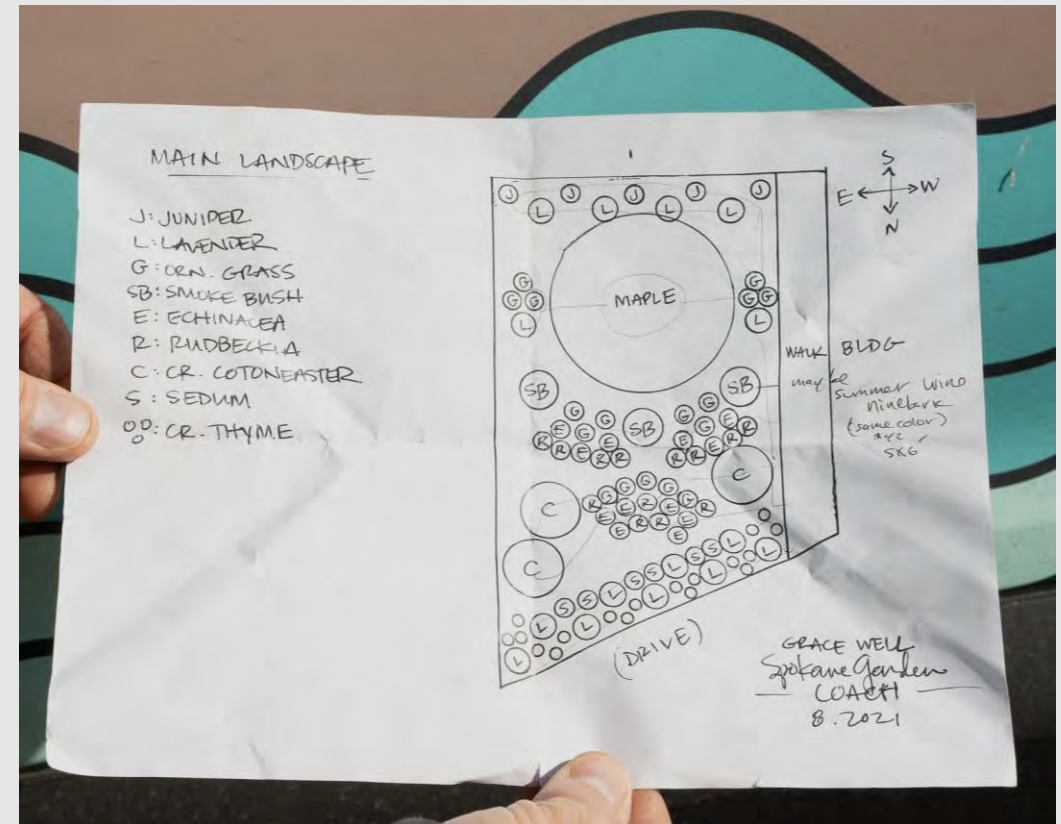 MAIN LANDSCAPE
J: JUNIPER
L: LAVENDER
G: ORN. GRASS
SB: SMOKE BUSH
E: ECHINACEA
R: RUDBECKIA
C: CR. COTONEASTER
S: SEDUM
CR. THYME
S
E W
N
J J J J J
L L L L
G G
G G MAPLE G G
L L
WALK BLDG
may be
summer wine
ninebark
(same color)
5x6
SB SB
SB
G G G G
E G G E
R E G E E G R R
R E R R R R E R
C
C
G G G G G G
R R
E E R E E
E R R E
E
C
L S S L S S L S S L
L L L L L
(DRIVE)
GRACE WELL
Spokane Garden
COACH
8.2021